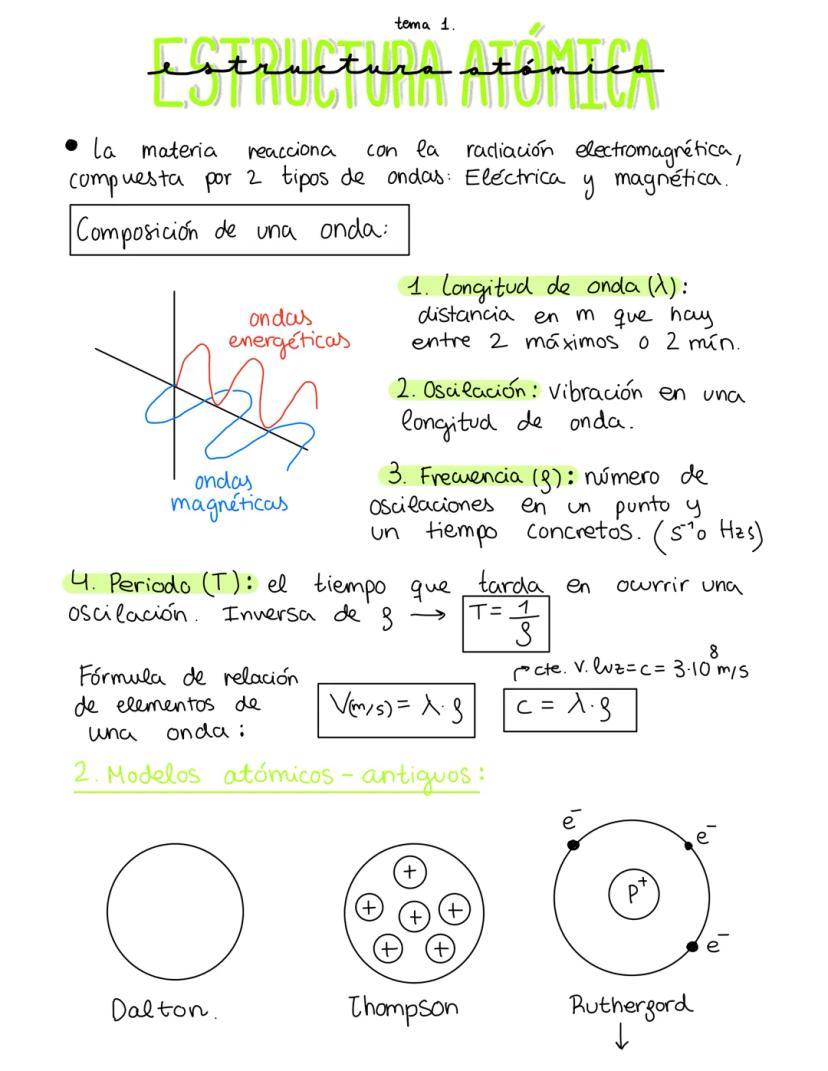 tema 1.
ESTRUCTURA ATÓMICA
estructura atómica
• La materia reacciona con la radiación electromagnética,
compuesta por 2 tipos de ondas: Eléctrica y magnética.
Composición de una onda:
ondas
energéticas
ondas
magnéticas
1. Longitud de onda (λ):
distancia en m que hay
entre 2 máximos o 2 mín.
2. Oscilación: Vibración en una
longitud de onda.
3. Frecuencia (f): número de
oscilaciones en un punto y
un tiempo concretos. (s⁻¹ o Hzs)
4. Periodo (T): el tiempo que tarda en ocurrir una
oscilación. Inversa de f → T = 1/f
Fórmula de relación
de elementos de
una onda:
V(m/s) = λ·f
cte. v. luz = c = 3·10⁸ m/s
c = λ·f
2. Modelos atómicos - antiguos:
+ + + + + +
e⁻ e⁻ e⁻
p⁺
Dalton. Thompson Rutherford
↓